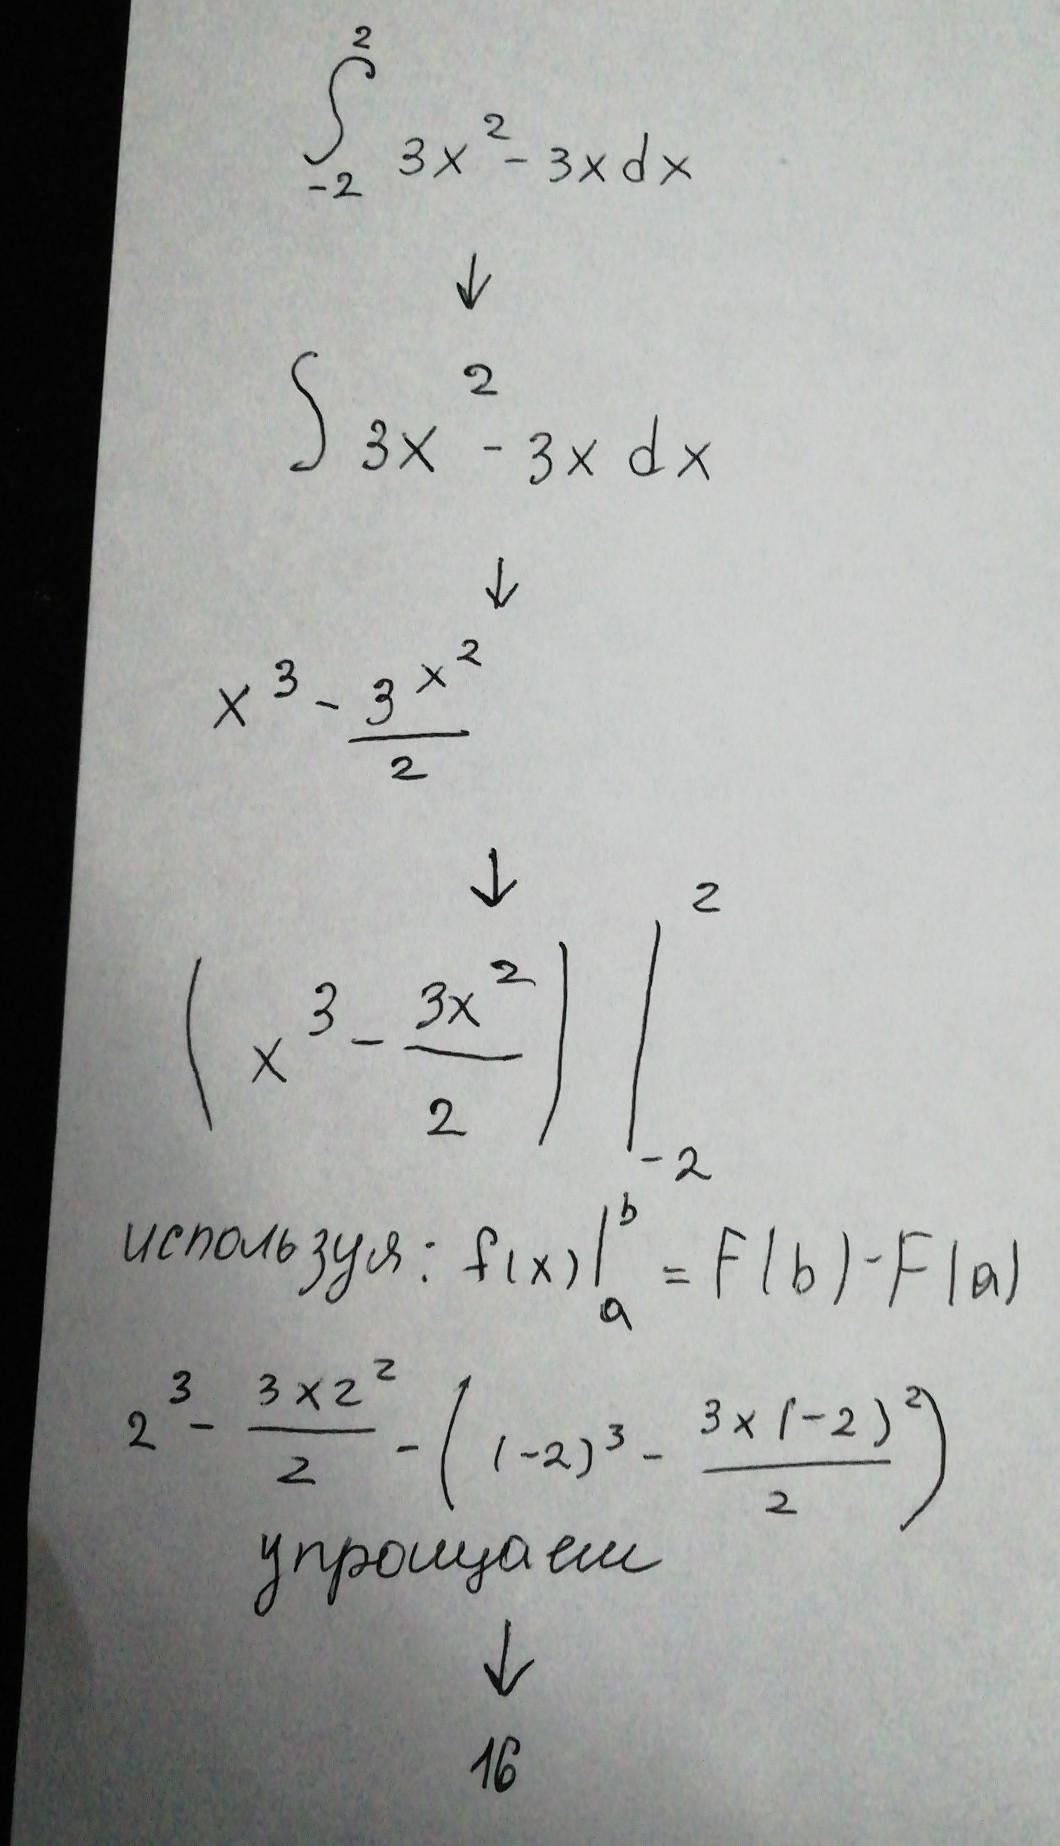 ∫₋₂² 3x² - 3x dx
↓
∫ 3x² - 3x dx
↓
x³ - 3x²/2
↓
(x³ - 3x²/2) |₋₂²
используя: f(x)|ₐᵇ = F(b) - F(a)
2³ - 3×2²/2 - ((-2)³ - 3×(-2)²/2)
упрощаем
↓
16